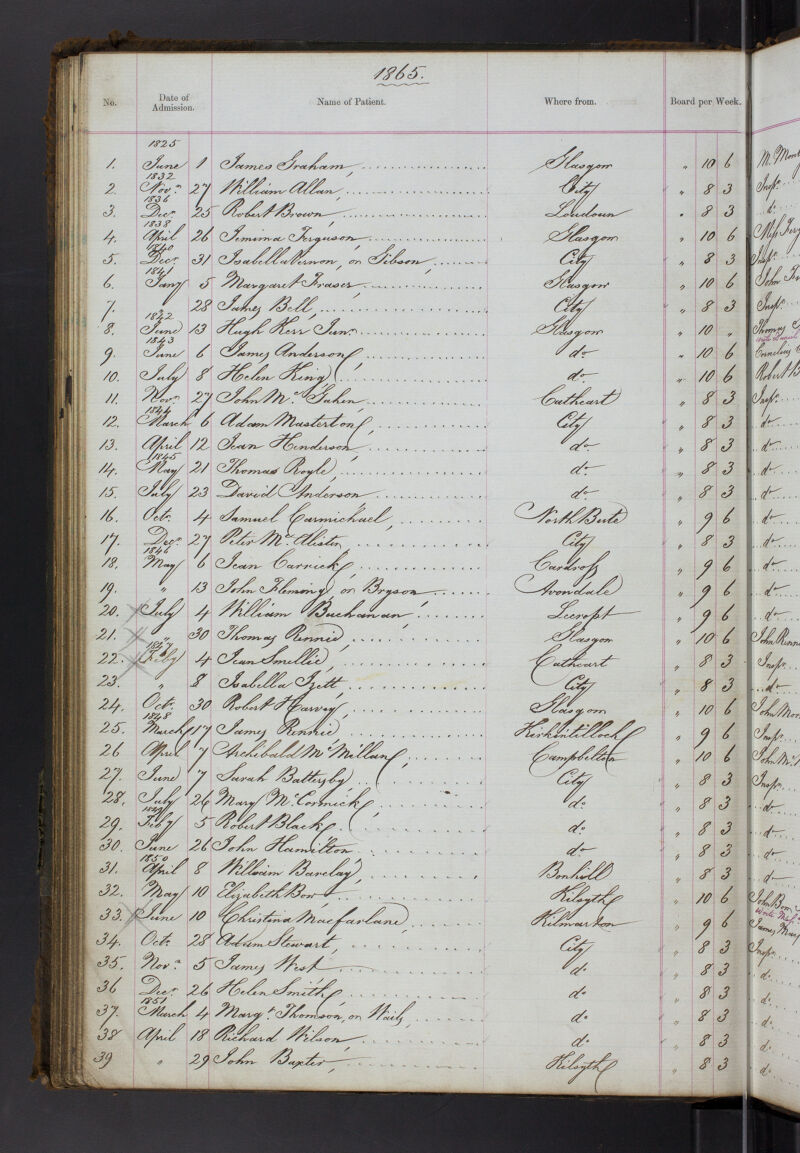 1865.
No. Date of Admission. Name of Patient. Where from. Board per Week.
1825
1. June 1 James Graham Glasgow " 10 6
1832
2. Nov.r 27 William Allan City " 8 3 Insp.r
1836
3. Dec.r 25 Robert Brown Loudoun " 8 3 d.o
1838
4. April 26 Jemima Ferguson Glasgow " 10 6 Miss
1840
5. Dec.r 31 Isabella Vernon, or Gibson City " 8 3 Insp.r
1841
6. Jany 5 Margaret Fraser Glasgow " 10 6 John
7. 28 James Bell City " 8 3 Insp.r
1842
8. June 13 Hugh Kerr Jun.r Glasgow " 10 " Thomas
1843
9. June 6 James Anderson do " 10 6 Cornelius
10. July 8 Helen King do " 10 6 Robert
11. Nov.r 27 John Mc Cathcart " 8 3 Insp.r
1844
12. March 6 Adam Masterton City " 8 3 do
13. April 12 Jean Henderson do " 8 3 do
1845
14. May 21 Thomas Royle do " 8 3 do
15. July 23 David Anderson do " 8 3 do
16. Oct.r 4 Samuel Carmichael North Bute " 9 6 do
17. Dec.r 27 Peter Mc Alister City " 8 3 do
1846
18. May 6 Jean Carrick Cardross " 9 6 do
19. " 13 John Fleming or Bryson Avondale " 9 6 do
20. July 4 William Buchanan Lecropt " 9 6 do
21. " 30 Thomas Rennie Glasgow " 10 6 John
1847
22. Feby 4 Jean Smellie Cathcart " 8 3 Insp.r
23. " 8 Isabella Izett City " 8 3 do
24. Oct.r 30 Robert Harvey Glasgow " 10 6 John
1848
25. March 17 James Rennie Kirkintilloch " 9 6 Insp.r
26 April 7 Archibald McMillan Campbelton " 10 6 John
27. June 7 Sarah Battersby City " 8 3 Insp.r
28. July 26 Mary McCormick do " 8 3 do
1849
29. Feby 5 Robert Black do " 8 3 do
30. June 26 John Hamilton do " 8 3 do
1850
31. April 8 William Barclay Bonhill " 8 3 do
32. May 10 Elizabeth Bow Kilsyth " 10 6 John Bow
33. June 10 Christina Macfarlane Kilmaronock " 9 6 James
34. Oct.r 28 Adam Stewart City " 8 3 Insp.r
35. Nov.r 5 James West do " 8 3 do
36 Dec.r 26 Helen Smith do " 8 3 do
1851
37. March 4 Marg.t Thomson, or do " 8 3 do
38 April 18 Richard Wilson do " 8 3 do
39 " 29 John Baxter Kilsyth " 8 3 do